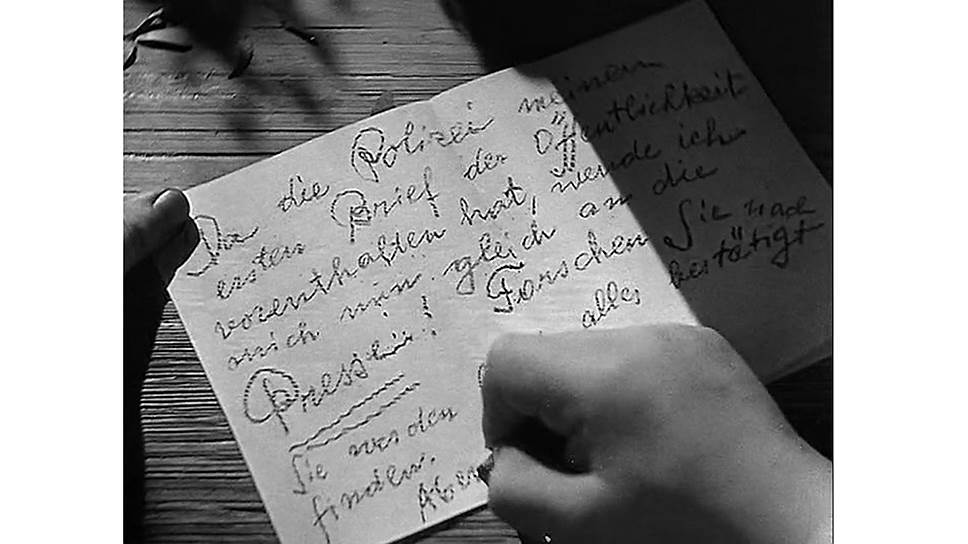 Da die Polizei meinen
ersten Brief der Öffentlichkeit
vorenthalten hat, wende ich
mich nun gleich an die
Presse!! Forschen Sie nach
Sie werden alles bestätigt
finden.
Aber